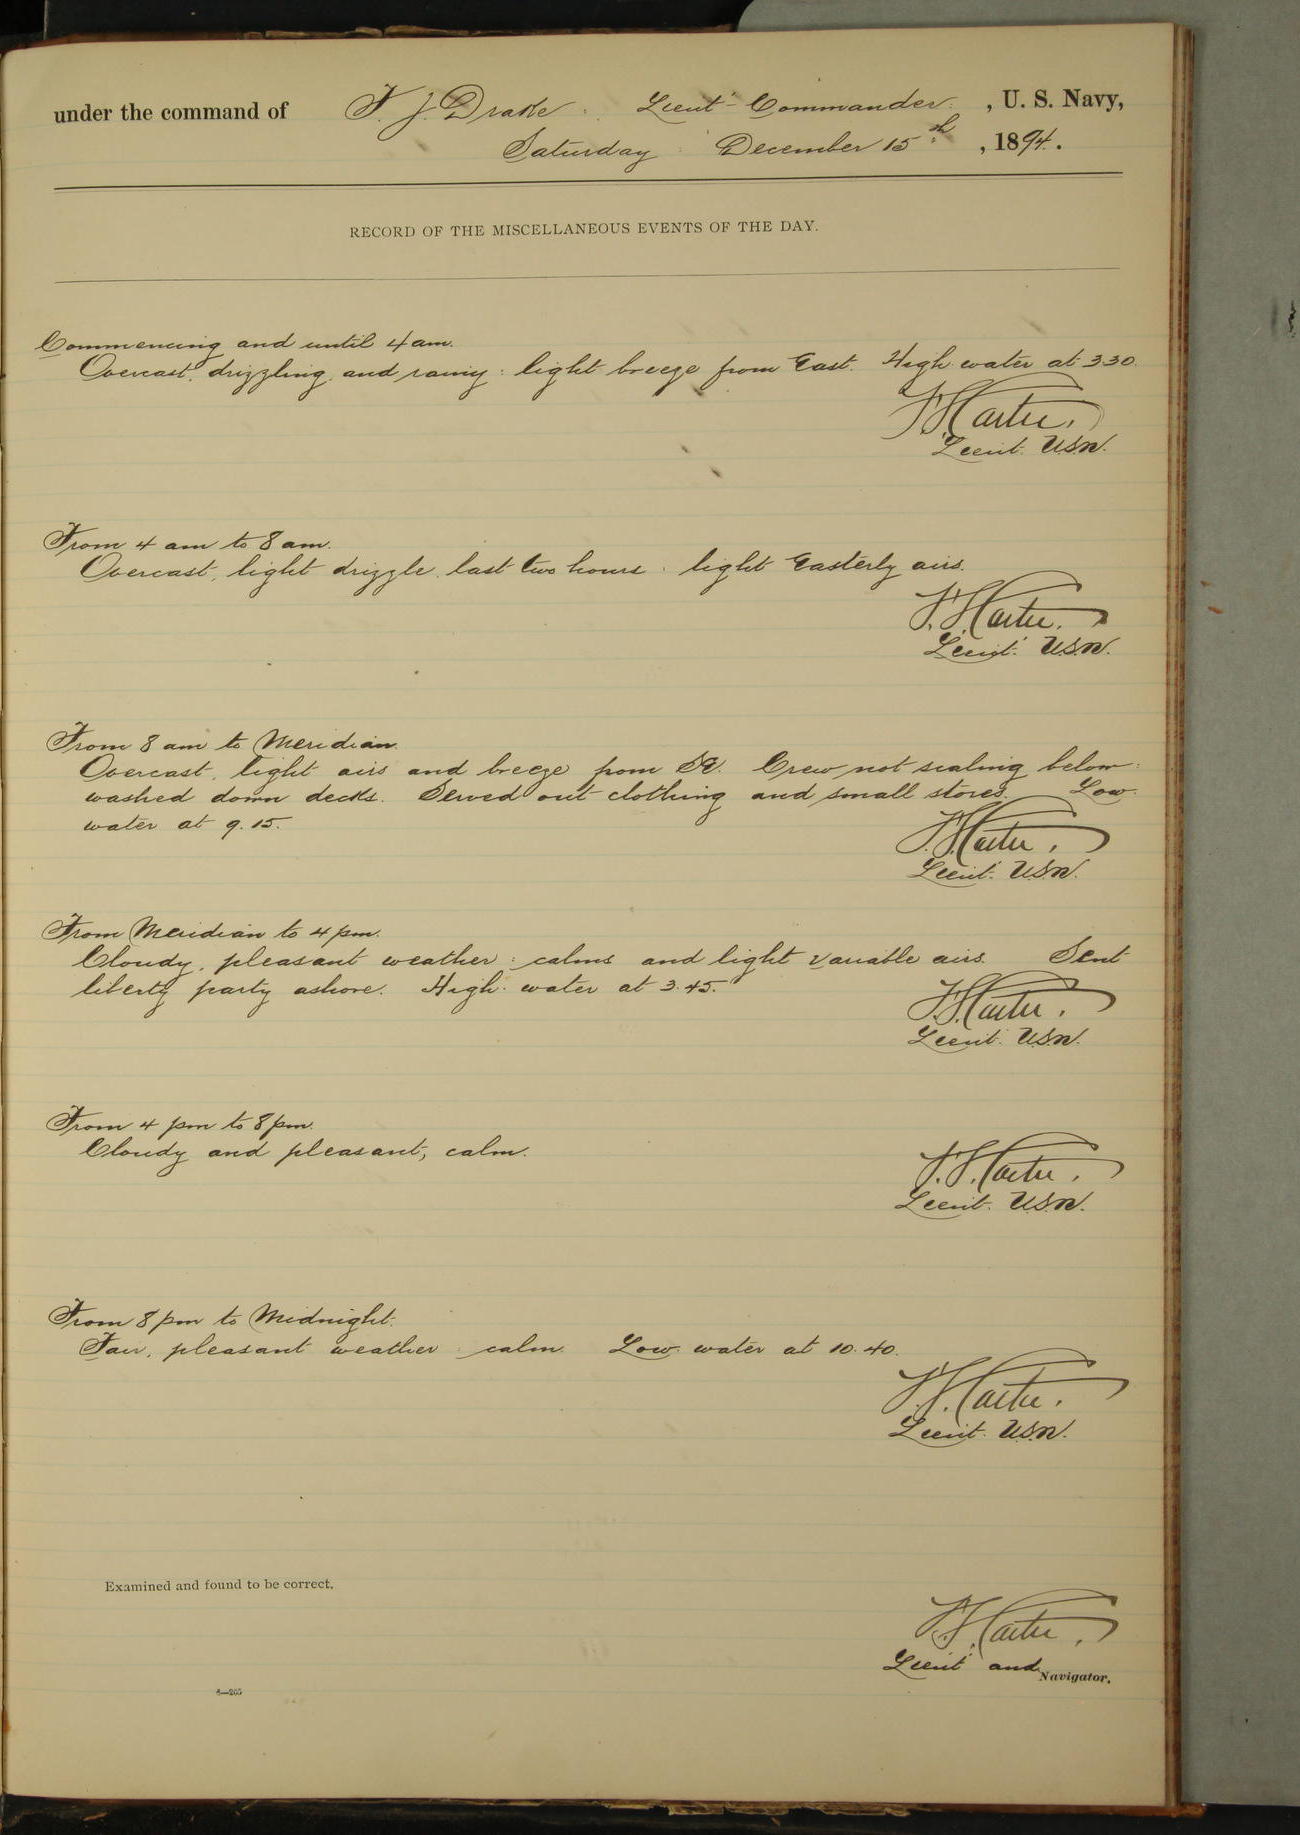 under the command of F. J. Drake Lieut-Commander, U. S. Navy,
Saturday December 15th, 1894.
RECORD OF THE MISCELLANEOUS EVENTS OF THE DAY.
Commencing and until 4 am.
Overcast, drizzling and rainy: light breeze from East. High water at 3 30.
Lieut. U.S.N.
From 4 am to 8 am.
Overcast, light drizzle last two hours: light Easterly airs.
Lieut. U.S.N.
From 8 am to Meridian.
Overcast, light airs and breeze from SE. Crew not scaling below:
washed down decks. Served out clothing and small stores. Low
water at 9.15.
Lieut. U.S.N.
From Meridian to 4 pm.
Cloudy, pleasant weather: calms and light variable airs. Sent
liberty party ashore. High water at 3.45.
Lieut. U.S.N.
From 4 pm to 8 pm.
Cloudy and pleasant, calm.
Lieut. U.S.N.
From 8 pm to Midnight.
Fair, pleasant weather calm. Low water at 10.40.
Lieut. U.S.N.
Examined and found to be correct.
Lieut and Navigator.